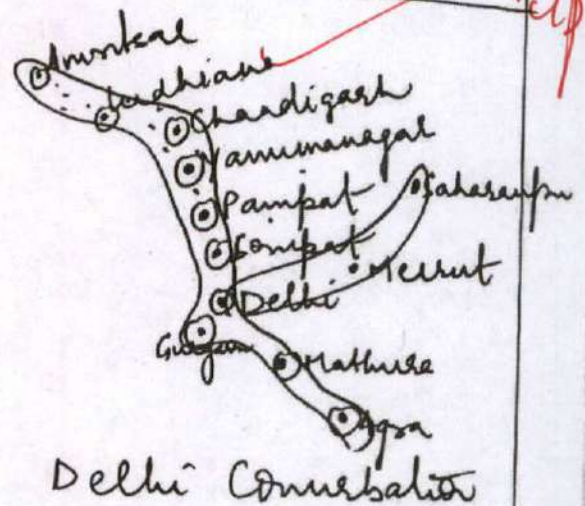 Amritsar
Ludhiana
Chandigarh
Yamunanagar
Panipat
Saharanpur
Sonipat
Meerut
Delhi
Gurgaon
Mathura
Agra
Delhi Conurbation